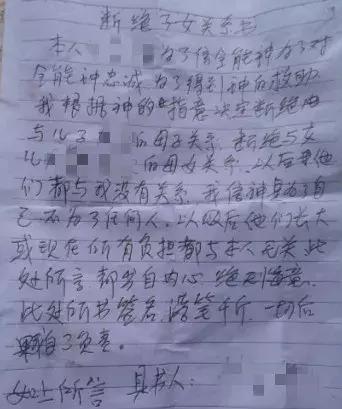 断绝子女关系书
本人 为了信全能神为了对
全能神忠诚为了得到神的救助
我根据神的指意决定断绝
与儿子 的母子关系.断绝与女
儿 的母女关系.以后
们都与我没有关系.我信神
己不为了任何人.以后他们长大
或现在所有负担都与本人无关.此
处所言都出自内心
此处所书签名 一切后
自己负责。
如上所言 具书人：